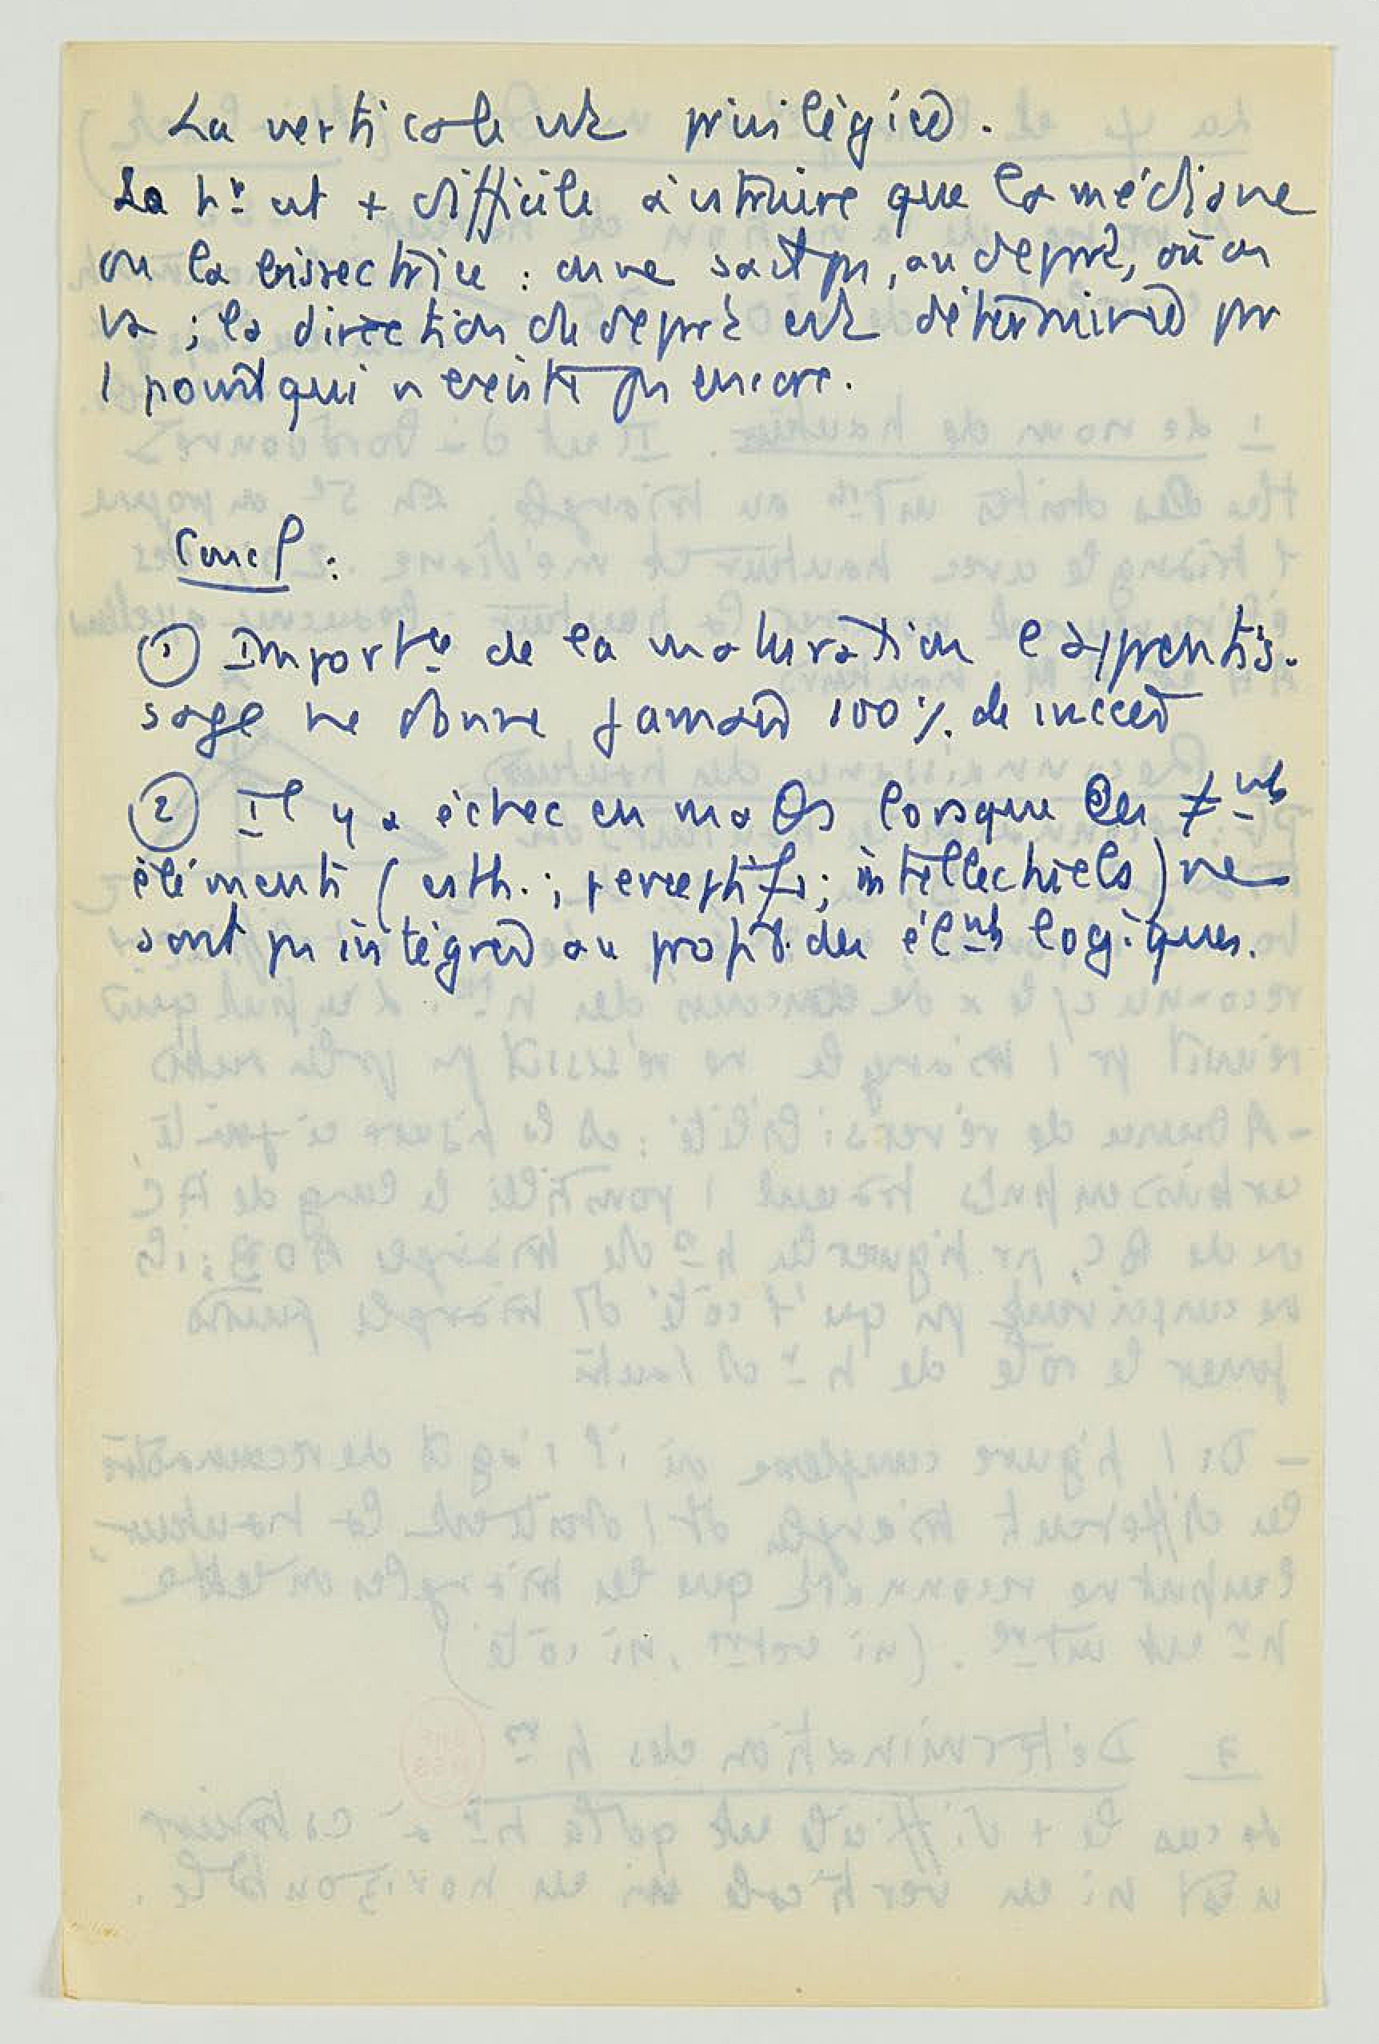 La verticale est privilégiée.
La hr est + difficile à cstruire que la médiane
ou la bissectrice : on ne sait pas, au départ, où on
va ; la direction de départ est déterminée par
1 point qui n'existe pas encore.
Concl :
① Importce de la maturation l'apprentis-
sage ne donne jamais 100% de succès
② Il y a échec en maths lorsque les ≠nts
éléments (esth. ; perceptifs ; intellectuels) ne
sont pas intégrés au profit des élnts logiques.